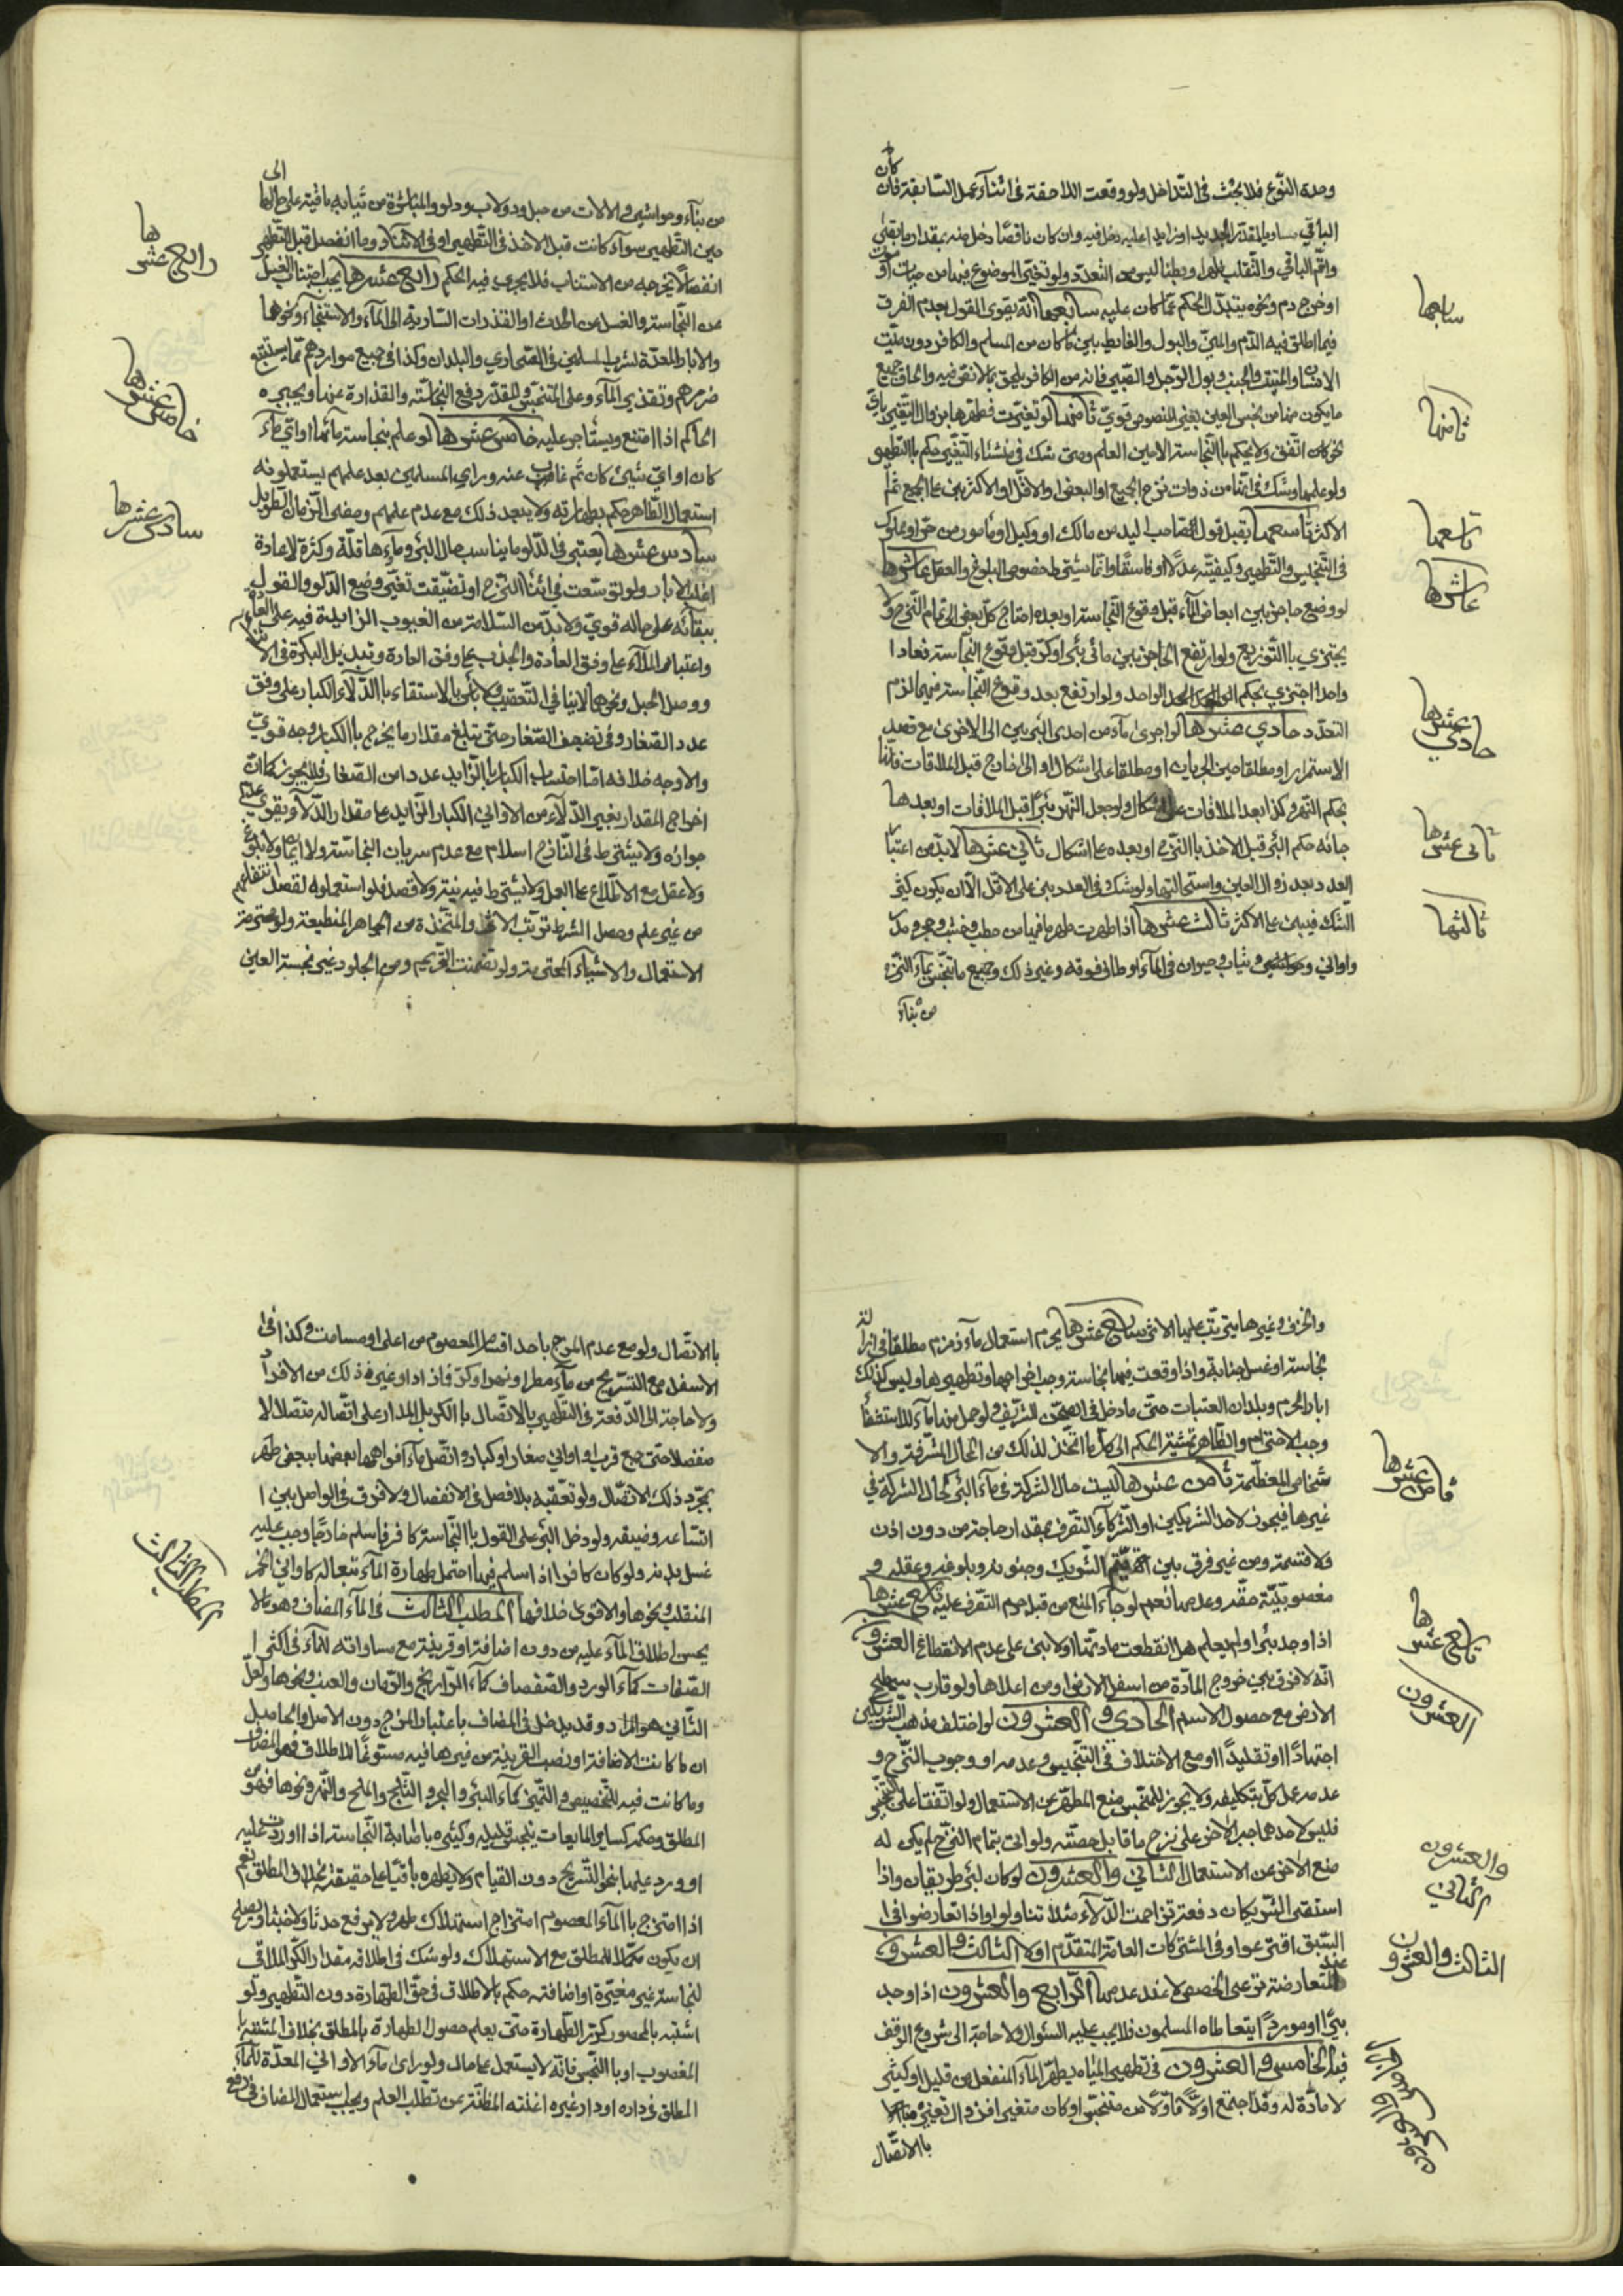 وحدة النوع فلا بحث في التداخل ولو وقعت اللاحقة في اثناء عمل السابقة فان كان
الباقي مساويا لمقدر الجديد او زايدا عليه دخل فيه وان كان ناقصا دخل منه بمقدار ما بقي
واتم الباقي والتقلب ظهرا وبطنا ليس من التعدد ولو تغير الموضوع فيها من حيات او موت
او خروج دم ونحوه يتبدل الحكم عما كان عليه سابعها انه يقوى القول بعدم الفرق
فيما اطلق فيه الدم والمني والبول والغايط بين ما كان من المسلم والكافر دون ميت
الانسان او الميتة والجنب وبول الرجل والصبي فانه من الكافر يلحق بالا نص فيه والحاق جميع
ما يكون منها من نجس العين بغير المنصوص قوي ثامنها لو تغيرت فطهرها بزوال التغير باي
نحو كان اتفق ولا يحكم بالنجاسة الا مع العلم ومتى شك في منشاء التغير حكم بالتطهير
ولو علمها وشك في انها من ذوات نزح الجميع او البعض او الاقل او الاكثر بنى على الجميع ثم على
الاكثر تاسعها يقبل قول صاحب اليد من مالك او وكيل او مامور من حر او مملوك
في التنجيس والتطهير وكيفيته عدلا او فاسقا وانما يشترط خصوص البلوغ والعقل عاشرها
لو وضع حاجز بين ابعاض الماء قبل وقوع النجاسة او بعده احتاج كل بعض الى تمام النزح ولا
يجتزي بالتوزيع ولو ارتفع الحاجز بين مائي بئر او كر قبل وقوع النجاسة فعادا
واحدا اجتزي بحكم الواحد ولو ارتفع بعد وقوع النجاسة فيهما لزم
التعدد حادي عشرها لو اجرى ماء من احدى البئرين الى الاخرى مع قصد
الاستمرار او مطلقا حين الجريان او مطلقا على اشكال او الى خارج قبل الملاقات فانها
بحكم النهر وكذا بعد الملاقات على اشكال ولو جعل النهر بئرا قبل الملاقات او بعدها
جائه حكم البئر قبل الاخذ بالنزح او بعده على اشكال ثاني عشرها لابد من اعتبار
العدد بعد زوال العين واستحالتها ولو شك في العدد بنى على الاقل الا ان يكون كثير
الشك فيبني على الاكثر ثالث عشرها اذا طهرت طهر ما فيها من حطب وخشب وحجر ومدر
واواني وحواشي وثياب وحيوان في الماء او طاف فوقه وغير ذلك وجميع ما تنجس بماء النزح
من بناء
سابعها
ثامنها
تاسعها
عاشرها
حادي عشرها
ثاني عشرها
ثالثها
من بناء وحواشي والالات من حبل ودولاب ودلو والمباشرة من ثيابه باقية على حالها الى
حين التطهير سواء كانت قبل الاخذ في التطهير او في الاثناء وما انفصل قبل التطهير
انفصالا يخرجه من الاستتباب فلا يجري فيه الحكم رابع عشرها يجب اجتناب الغسل
عن النجاسة والغسل من الحدث او القذرات السارية الى الماء والاستنجاء ونحوها
والابار المعدة لشرب المسلمين في الصحاري والبلدان وكذا في جميع مواردهم مما يستتبع
ضررهم وتقذير الماء وعلى المنجس والمقذر دفع النجاسة والقذارة عنها ويجبره
الحاكم اذا امتنع ويستاجر عليه خامس عشرها لو علم بنجاسة مائها او اي ماء
كان او اي شيئ كان ثم غاب عنه وراى المسلمين بعد علمهم يستعملونه
استعمال الطاهر حكم بطهارته ولا يبعد ذلك مع عدم علمهم ومضى الزمان الطويل
سادس عشرها يعتبر في الدلو ما يناسب حال البئر وماءها قلة وكثرة لا عادة
اغلب الابار ولو توسعت في اثناء النزح او تضيقت تغير وضع الدلو والقول
ببقائه على حاله قوي ولابد من السلامة من العيوب الزايدة فيه على العادة
واعتبار الملاء على وفق العادة والجذب على وفق العادة وتبديل البكرة في الاثناء
ووصل الحبل ونحوها لا ينافي التعقيب ولا بأس بالاستقاء بالدلاء الكبار على وفق
عدد الصغار وفي تضعف الصغار حتى تبلغ مقدار ما يخرج بالكبار وجه قوي
والاوجه خلافه اما احتساب الكبار بالزايد عددا من الصغار فلا يجوز كما ان
اخراج المقدار بغير الدلاء من الاواني الكبار الزايد على مقدار الدلاء ويقوى عدم
جوازه ولا يشترط في النازح اسلام مع عدم سريان النجاسة ولا ايمان ولا بلوغ
ولا عقل مع الاطلاع على العمل ولا يشترط فيه نية ولا قصد فلو استعملوه لقصد انتفاعهم
من غير علم وحصل الشرط ترتب الاثر والمتخذة من الجواهر المنطبعة ولو محترمة
الاستعمال والاشياء المحترمة ولو تضمنت التحريم ومن الجلود غير نجسة العين
رابع عشرها
خامس عشرها
سادس عشرها
والخزف وغيرها يترتب عليها الاثر سابع عشرها يحرم استعمال ماء زمزم مطلقا في ازالة
نجاسة او غسل جنابة واذا وقعت فيها نجاسة وجب اخراجها وتطهيرها وليس كذلك
ابار الحرم وبلدان العتبات حتى ما دخل في الصحن الشريف ولو حمل منها ماء للاستشفاء
وجب الاحترام والظاهر تمشية الحكم الى كل ما اتخذ لذلك من المحال المشرفة والا
شخاص المعظمة ثامن عشرها ليست حال الشركة في ماء البئر كحال الشركة في
غيرها فيجوز لاحد الشريكين او الشركاء التصرف بمقدار حاجته من دون اذن
ولا قسمة ومن غير فرق بين الشريك وجنونه وبلوغه وعقله و
مغصوبية حقه وعدمها نعم لو جاء المنع من قبله حرم التصرف عليه تاسع عشرها
اذا وجد بئرا ولم يعلم هل انقطعت مادتها او لا بنى على عدم الانقطاع العشرون
انه لا فرق بين خروج المادة من اسفل الارض او من اعلاها ولو قارب سطح
الارض مع حصول الاسم الحادي والعشرون لو اختلف مذهب الشريكين
اجتهادا او تقليدا او مع الاختلاف في التنجيس وعدمه او وجوب النزح و
عدمه عمل كل بتكليفه ولا يجوز للمنجس منع المطهر عن الاستعمال ولو اتفقا على التنجيس
فليس لاحدهما جبر الاخر على نزح ما قابل حصته ولو اتى بتمام النزح لم يكن له
منع الاخر عن الاستعمال الثاني والعشرون لو كان لبئر طريقان واذا
استقى الشريكان دفعة تزاحمت الدلاء مثلا تناولوا واذا تعارضوا في
السبق اقترعوا وفي المشتركات العامة المتقدم اولا الثالث والعشرون
عند المتعارضة ترعى الحصص لا عند عدمها الرابع والعشرون اذا وجد
بئرا او موردا يتعاطاه المسلمون فلا يجب عليه السؤال ولا حاجة الى شروع الوقف
فيه الخامس والعشرون في تطهير المياه يطهر الماء المنفعل من قليل او كثير
لا مادة له وقد اجتمع اولا فاولا من متنجس او كان متغيرا فزال تغيره
بالاتصال
ثامن عشرها
تاسع عشرها
العشرون
والعشرون
الثاني
الثالث والعشرون
الخامس والعشرون
بالاتصال ولو مع عدم المزج باحد اقسام المعصوم من اعلى او مسامت وكذا في
الاسفل مع التسريح من ماء مطر او نهر او كر فازاد او غير ذلك من الافراد
ولا حاجة الى الدفعة في التطهير بالاتصال بالكر بل المدار على اتصاله متصلا لا
منفصلا حتى جمع قرب او اواني صغار او كبار واتصل ماء افواهها بعضها ببعض طهر
بمجرد ذلك الاتصال ولو تعقبه بلا فصل في الانفصال ولا فرق في الواصل بين ا
تساعه وضيقه ولو دخل البئر على القول بالنجاسة كافر فاسلم خارجا وجب عليه
غسل بدنه ولو كان كافرا اذ اسلم فيها احتمل طهارة الماء تبعا له كاواني الخمر
المنقلب ونحوها والاقوى خلافها المطلب الثالث في الماء المضاف وهو ما لا
يحسن اطلاق الماء عليه من دون اضافة او قرينة مع مساواته للماء في اكثر ا
لصفات كماء الورد والصفصاف كماء الرازيانج والرمان والعنب ونحوها ولعل
الثاني هو المراد وقد يدخل في المضاف باعتبار المزج دون الاصل والحاصل
ان ما كانت الاضافة او نصب القرينة من غيرها فيه مسوغا للاطلاق فهو المضاف
وما كانت فيه للتخصيص والتميز كماء البئر والبحر والثلج والملح والنهر ونحوها فهو من
المطلق وحكمه كساير المايعات ينجس قليله وكثيره باصابة النجاسة اذا وردت عليه
او ورد عليها بنحو التسريح دون القيام ولا يطهره باقيا على حقيقته بخلاف المطلق نعم
اذا امتزج بالماء المعصوم امتزاج استهلاك طهر ولا يرفع حدثا ولا خبثا ويصلح
ان يكون مكملا للمطلق مع الاستهلاك ولو شك في اطلاقه مقدار الكر الملاقي
لنجاسة غير مغيرة او اضافته حكم بالاطلاق في حق الطهارة دون التطهير ولو
اشتبه بالمحصور كرر الطهارة حتى يعلم حصول الطهارة بالمطلق بخلاف المشتبه با
المغصوب او بالنجس فانه لا يستعمل على حال ولو راى ماء الاواني المعدة للماء
المطلق في داره او دار غيره اغنته المظنة عن تطلب العلم ويجب استعمال المضاف في رفع
المطلب الثالث